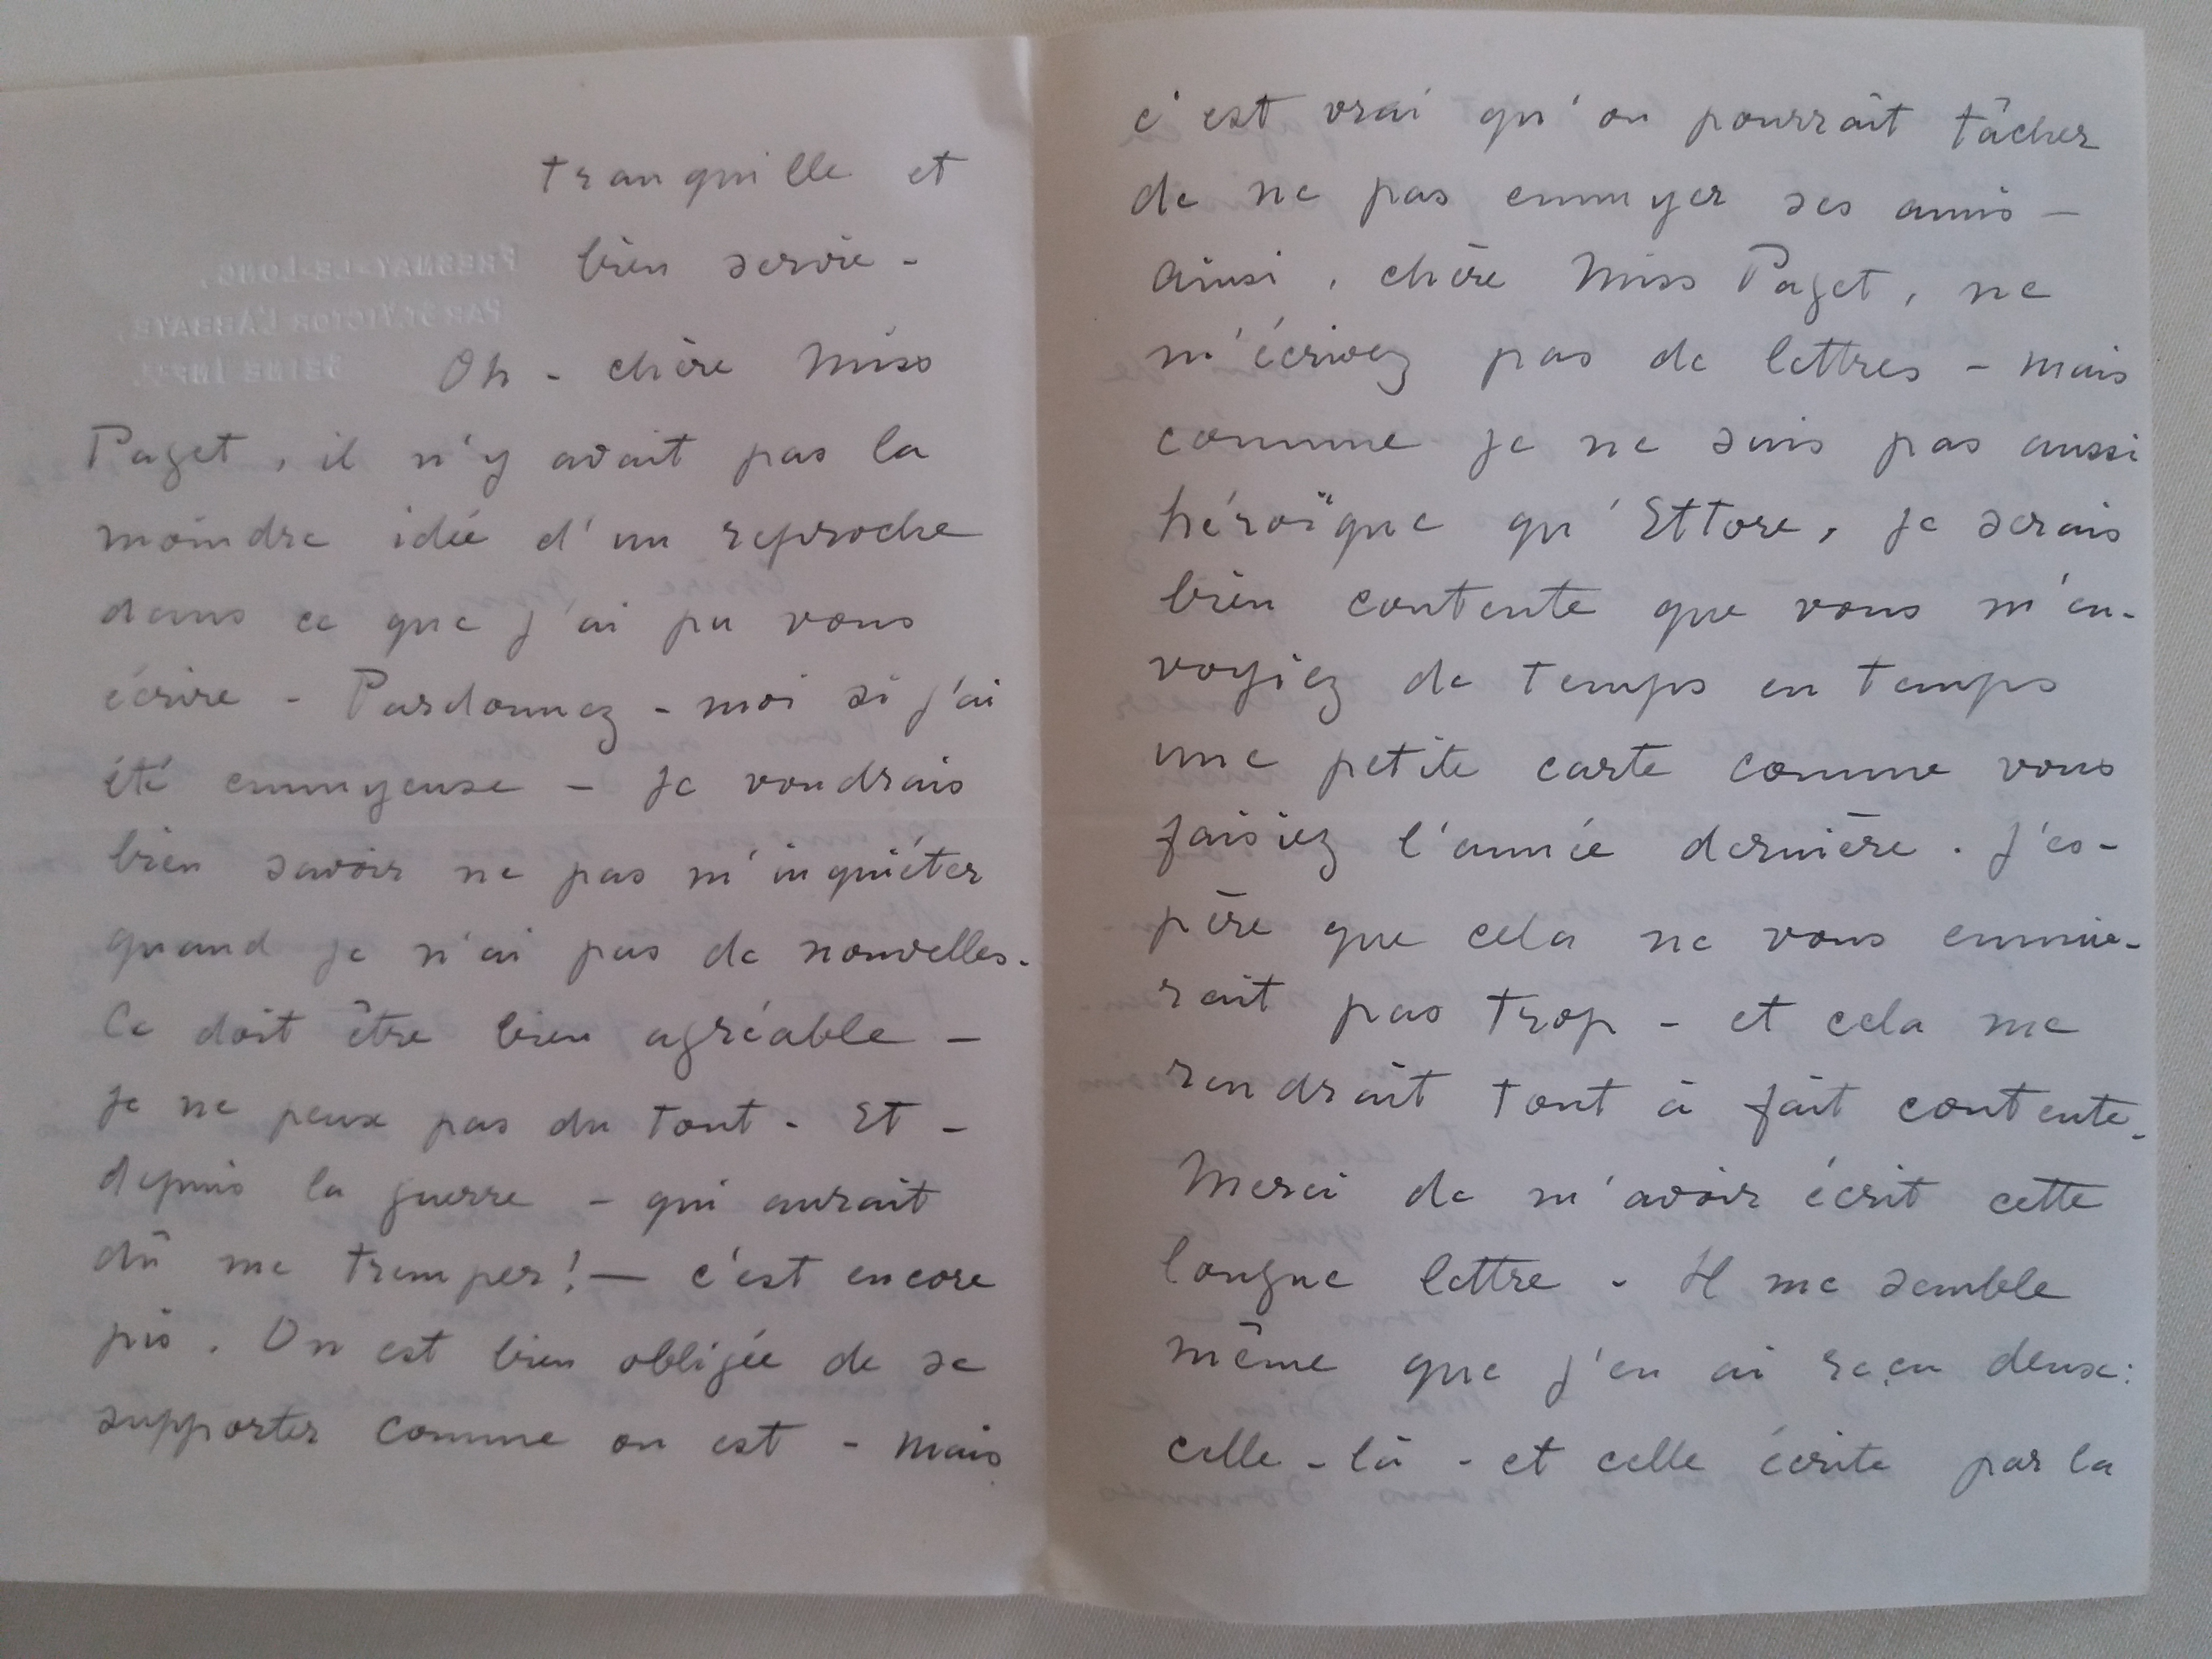 tranquille et
bien servie -
Oh - chère Miss
Paget, il n'y avait pas la
moindre idée d'un reproche
dans ce que j'ai pu vous
écrire - Pardonnez-moi si j'ai
été ennuyeuse - je voudrais
bien savoir ne pas m'inquiéter
quand je n'ai pas de nouvelles.
Ce doit être bien agréable -
je ne peux pas du tout. Et -
depuis la guerre - qui aurait
dû me tremper! — c'est encore
pis. On est bien obligée de se
supporter comme on est - mais
c'est vrai qu'on pourrait tâcher
de ne pas ennuyer ses amis -
ainsi, chère Miss Paget, ne
m'écrivez pas de lettres - mais
comme je ne suis pas aussi
héroïque qu'Ettore, je serais
bien contente que vous m'en-
voyiez de temps en temps
une petite carte comme vous
faisiez l'année dernière. J'es-
père que cela ne vous ennuie-
rait pas trop - et cela me
rendrait tout à fait contente.
Merci de m'avoir écrit cette
longue lettre - Il me semble
même que j'en ai reçu deux:
celle-là - et celle écrite par la
FRESNAY-LE-LONG,
PAR ST VICTOR L'ABBAYE,
SEINE INFRE.